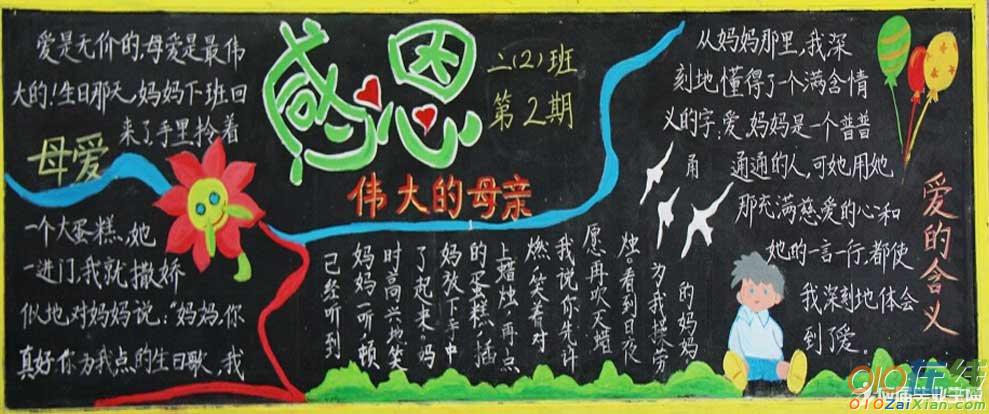 爱是无价的,母爱是最伟
大的!生日那天,妈妈下班回
来了手里拎着
母爱
一个大蛋糕,她
一进门,我就撒娇
似地对妈妈说:“妈妈,你
真好!你为我点的生日歌,我
感恩
二(2)班
第2期
伟大的母亲
己经听到
妈妈一听顿
时高兴地笑
了起来。妈
妈放下手中
的蛋糕,插
上蜡烛,再点
燃,笑着对
我说你先许
愿再吹灭蜡
烛。看到日夜
为我操劳
的妈妈
从妈妈那里,我深
刻地懂得了一个满含情
义的字:爱,妈妈是一个普普
通通的人,可她用她
那充满慈爱的心和
她的一言一行,都使
我深刻地体会
到了爱。
爱的含义
010在线
010ZaiXian.com